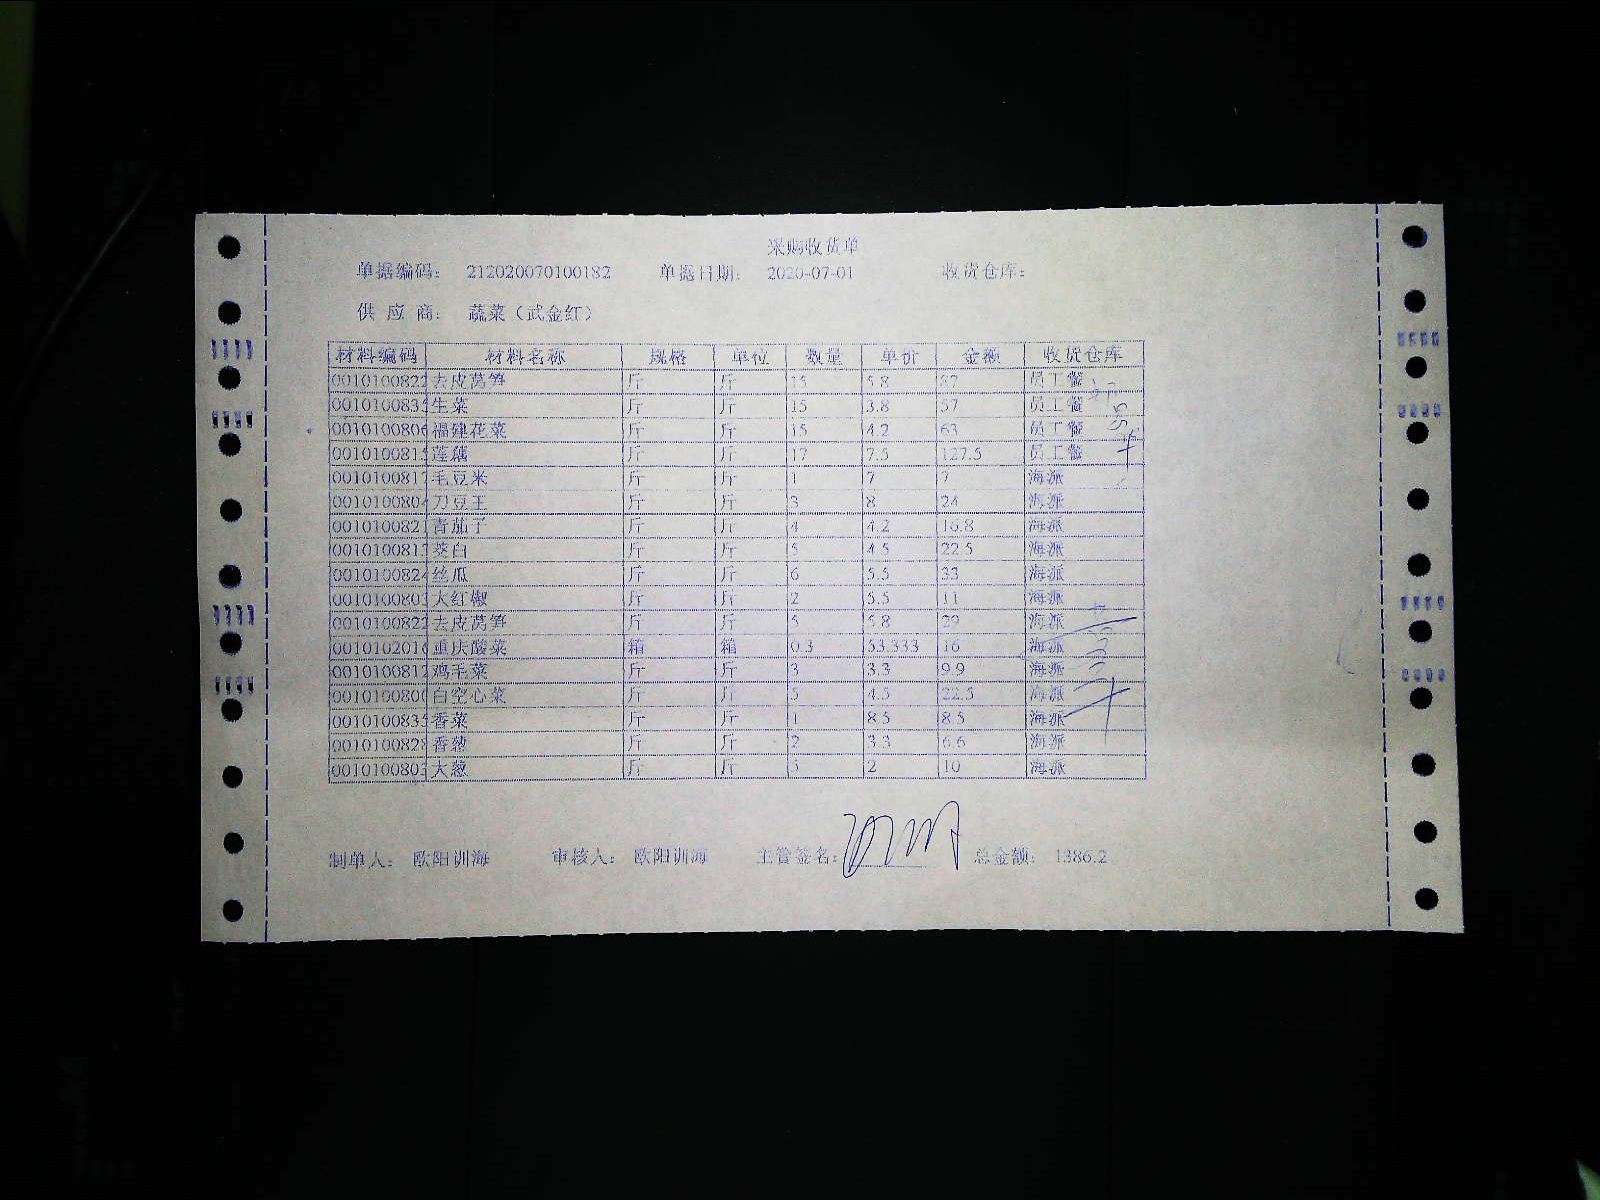 采购收货单
单据编码： 212020070100182 单据日期： 2020-07-01 收货仓库：
供 应 商： 蔬菜（武金红）
材料编码 材料名称 规格 单位 数量 单价 金额 收货仓库
0010100822 去皮莴笋 斤 斤 15 5.8 87 员工餐
0010100835 生菜 斤 斤 15 3.8 57 员工餐
0010100806 福建花菜 斤 斤 15 4.2 63 员工餐
0010100815 莲藕 斤 斤 17 7.5 127.5 员工餐
0010100817 毛豆米 斤 斤 1 7 7 海派
0010100804 刀豆王 斤 斤 3 8 24 海派
0010100821 青茄子 斤 斤 4 4.2 16.8 海派
0010100813 茭白 斤 斤 5 4.5 22.5 海派
0010100824 丝瓜 斤 斤 6 5.5 33 海派
0010100803 大红椒 斤 斤 2 5.5 11 海派
0010100822 去皮莴笋 斤 斤 5 5.8 29 海派
0010102016 重庆酸菜 箱 箱 0.3 53.333 16 海派
0010100812 鸡毛菜 斤 斤 3 3.3 9.9 海派
0010100800 白空心菜 斤 斤 5 4.5 22.5 海派
0010100835 香菜 斤 斤 1 8.5 8.5 海派
0010100828 香葱 斤 斤 2 3.3 6.6 海派
0010100803 大葱 斤 斤 2 10 海派
制单人： 欧阳训海 审核人： 欧阳训海 主管签名： 总金额： 1386.2